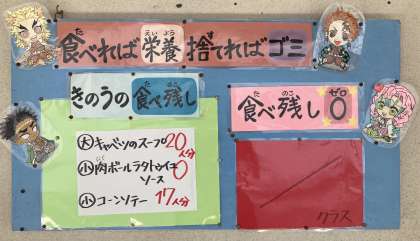 食べれば栄養捨てればゴミ
きのうの食べ残し
㊛キャベツのスープ20人分
㊙肉ボールラタトゥイユ0
ソース
㊙コーンソテー 17人分
食べ残し0
クラス